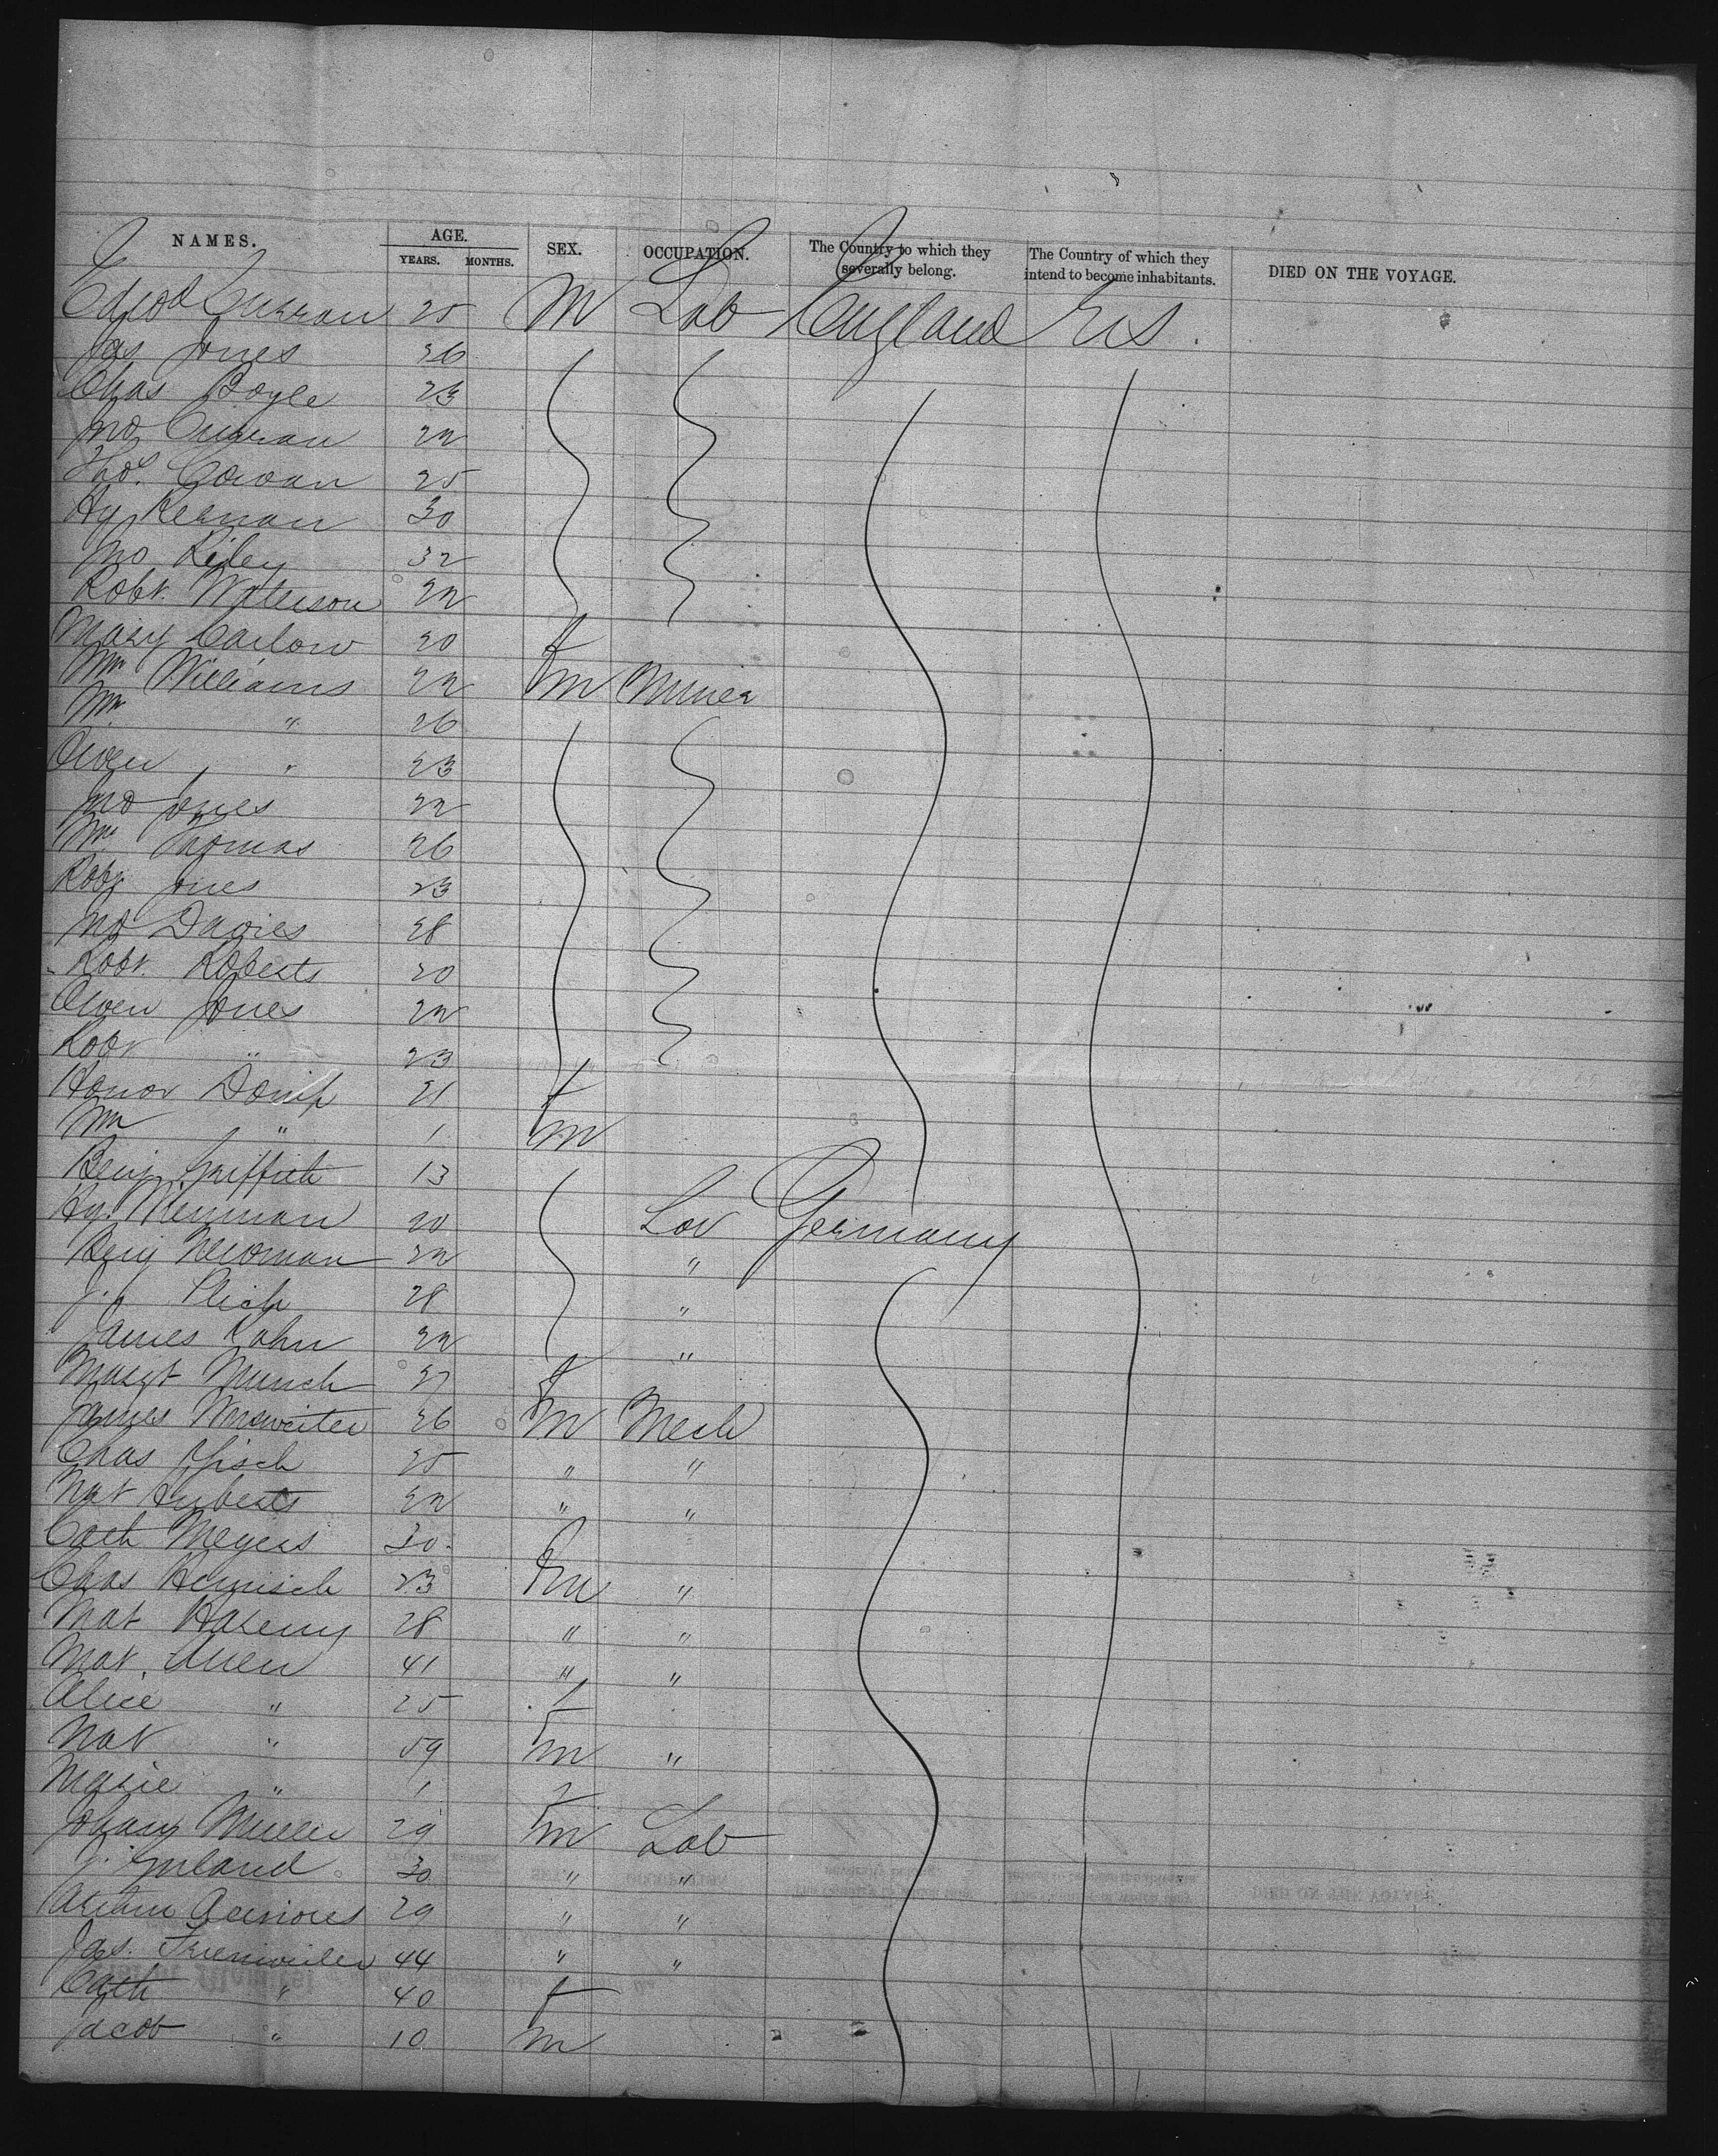 NAMES. AGE. YEARS. MONTHS. SEX. OCCUPATION. The Country to which they severally belong. The Country of which they intend to become inhabitants. DIED ON THE VOYAGE.
Edwd Curran 25 M Lab England US.
Jas Jones 26
Chas Boyle 23
Jno Curran 22
Thos. Cowan 25
Hy Kernan 30
Jno Riley 32
Robt. Waterson 22
Mary Carlow 20 f
Wm Williams 22 m Miner
Wm " 26
Owen " 23
Jno Jones 22
Wm Thomas 26
Robt Jones 23
Jno Davies 28
Robt. Roberts 20
Owen Jones 22
Robt " 23
Honor 21 f
Wm " 1 m
Benj Griffith 13
Hy. Merriman 20 Lab Germany
Benj Newman 22 "
J. 28 "
James Kahn 22 "
Margt Munch 27 f
James 26 m Mech
Chas 25 " "
Mat 22 " "
Cath Meyers 30 f
Chas 23 m "
Mat 28 " "
Mat. 41 " "
Alice " 25 f
Mat " 59 m "
Marie " 1 f
Müller 29 m Lab
J. 30 " "
29 " "
Jas. 44 " "
Cath " 40 f
Jacob " 10 m